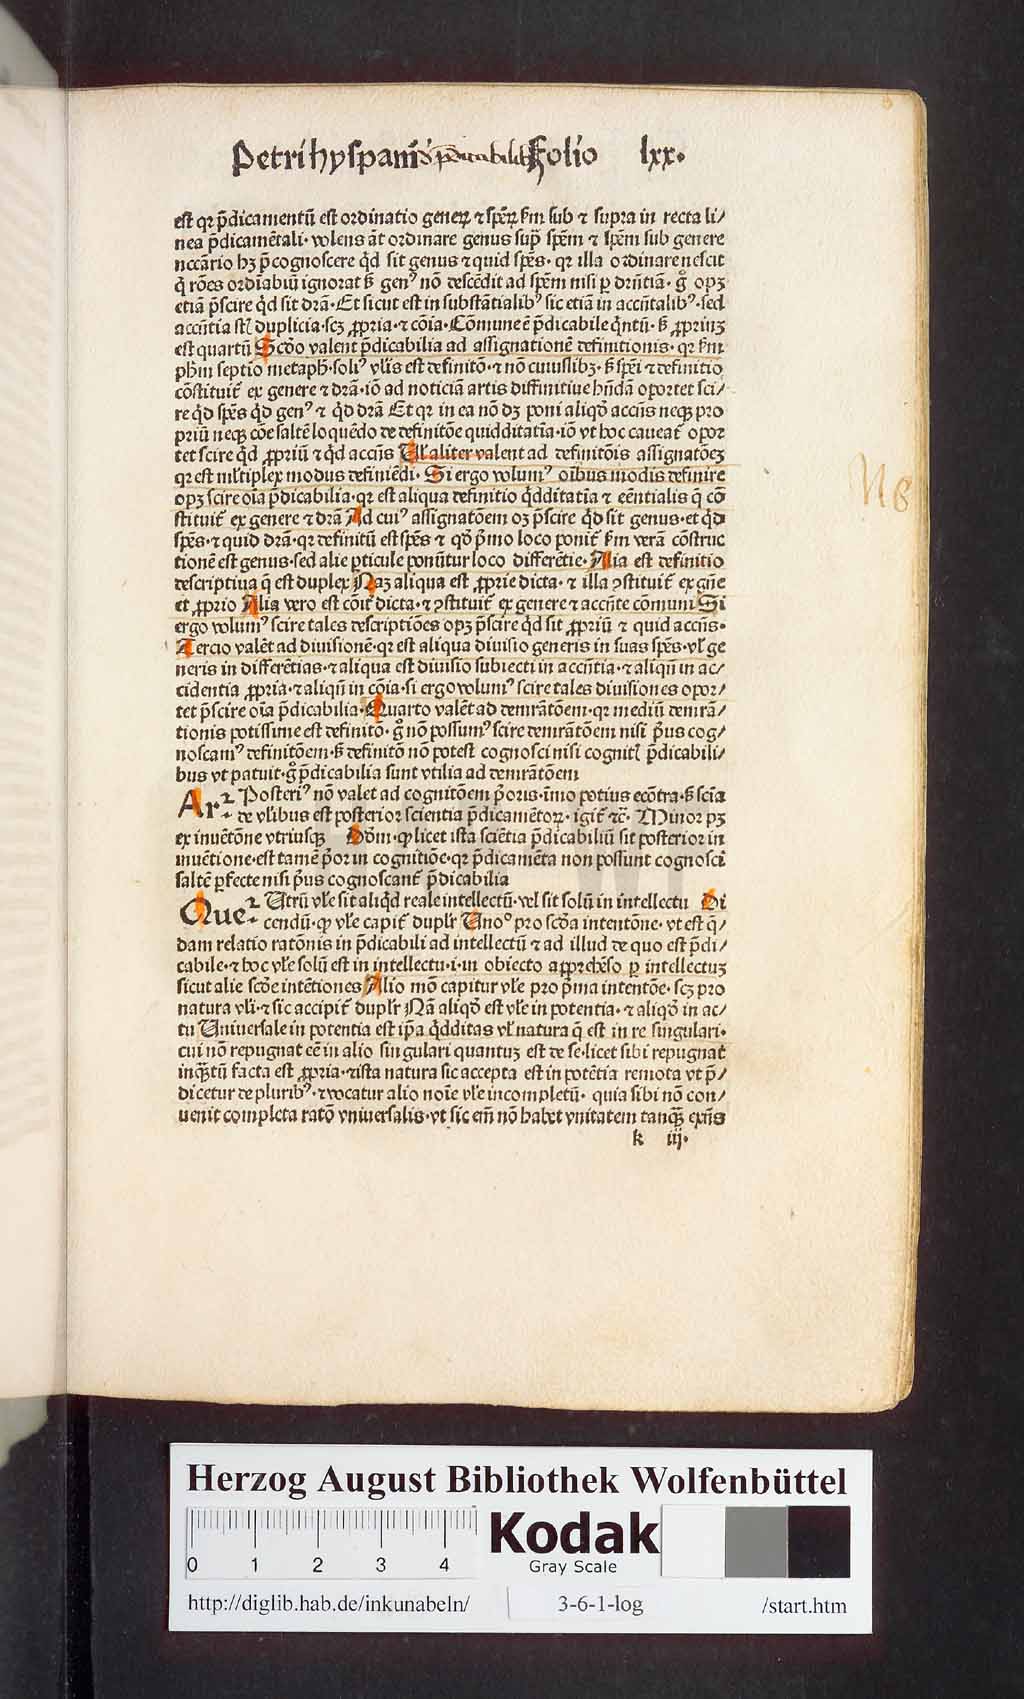 Petri hyspani de p̄dicabilib Folio lxx.
est qꝛ p̄dicamentū est ordinatio geneꝝ ⁊ spēꝝ ẜm sub ⁊ supra in recta li/
nea p̄dicamētali· volens āt ordinare genus sup̄ spēm ⁊ spēm sub genere
nccārio hꝫ p̄cognoscere qd̄ sit genus ⁊ quid spēs· qꝛ illa ordinare nescit
q̄ rōes ordīabiū ignorat ẜ genꝰ nō descēdit ad spēm nisi ꝑ drn̄tiā· gͦ opꝫ
etiā p̄scire qd̄ sit drā· Et sicut est in substātialibꝰ sic etiā in accn̄talibꝰ· sed
accn̄tia sūt duplicia· scꝫ ꝓpria· ⁊ cōia· Cōmune ē p̄dicabile qͥntū· ẜ ꝓpriuꝫ
est quartū Scdo valent p̄dicabilia ad assignationē definitionis· qꝛ ẜm
ph̄m septio metaph̄· solꝰ vlis est definitō· ⁊ nō cuiuslibꝫ· ẜ spēi ⁊ definitio
cōstituit̄ ex genere ⁊ drā· iō ad noticiā artis diffinitiue hn̄dā oportet sci/
re qd̄ spēs qd̄ genꝰ ⁊ qd̄ drā Et qꝛ in ea nō dꝫ poni aliqd̄ accn̄s neqꝫ pro
priū neqꝫ cōe saltē loquēdo de definitōe quidditatīa· iō vt hoc caueat̄ opor
tet scire qd̄ ꝓpriū ⁊ qd̄ accn̄s Vl̄ aliter valent ad definitōis assignatōeꝫ
qꝛ est ml̄tiplex modus definiēdi· Si ergo volumꝰ oībus modis definire
opꝫ scire oīa p̄dicabilia· qꝛ est aliqua definitio qͥdditatīa ⁊ eēntialis q̄ cō
stituit̄ ex genere ⁊ drā Ad cuiꝰ assignatōem oꝫ p̄scire qd̄ sit genus· et qd̄
spēs· ⁊ quid drā· qꝛ definitū est spēs ⁊ qd̄ p̄mo loco ponit̄ ẜm verā cōstruc
tionē est genus· sed alie ꝑticule ponūtur loco differētie· Alia est definitio
descriptiua q̄ est duplex Naꝫ aliqua est ꝓprie dicta· ⁊ illa ꝯstituit̄ ex gn̄e
et ꝓprio Alia vero est cōit̄ dicta· ⁊ ꝯstituit̄ ex genere ⁊ accn̄te cōmuni Si
ergo volumꝰ scire tales descriptiōes opꝫ p̄scire qd̄ sit ꝓpriū ⁊ quid accn̄s·
Tercio valēt ad diuisionē· qꝛ est aliqua diuisio generis in suas spēs· vl̄ ge
neris in differētias· ⁊ aliqua est diuisio subiecti in accn̄tia· ⁊ aliqn̄ in ac/
cidentia ꝓpria· ⁊ aliqn̄ in cōia· si ergo volumꝰ scire tales diuisiones opor/
tet p̄scire oīa p̄dicabilia· Quarto valēt ad demrātōem· qꝛ mediū demrā/
tionis potissime est definitō· gͦ nō possumꝰ scire demrātōem nisi p̄us cog/
noscamꝰ definitōem· ẜ definitō nō potest cognosci nisi cognitꝭ p̄dicabili/
bus vt patuit· gͦ p̄dicabilia sunt vtilia ad demrātōem
Arꝛ Posteriꝰ nō valet ad cognitōem p̄oris· īmo potius ecōtra· ẜ scīa
de vl̄ibus est posterior scientia p̄dicamētoꝝ· igit̄ ⁊c̄· Minor pꝫ
ex inuētōne vtriusqꝫ Dōm· ꝙ licet ista sciētia p̄dicabiliū sit posterior in
inuētione· est tamē p̄or in cognitiōe· qꝛ p̄dicamēta non possunt cognosci
saltē ꝑfecte nisi p̄us cognoscant̄ p̄dicabilia
Queꝛ Vtrū vl̄e sit aliqd̄ reale intellectū· vel sit solū in intellectu Di
cendū· ꝙ vl̄e capit̄ duplr̄ Vnoͦ pro scd̄a intentōne· vt est q̄/
dam relatio ratōnis in p̄dicabili ad intellectū ⁊ ad illud de quo est p̄di/
cabile· ⁊ hoc vl̄e solū est in intellectu· i· in obiecto apprehēso ꝑ intellectuꝫ
sicut alie scd̄e intētiones Alio mō capitur vl̄e pro p̄ma intentōe· scꝫ pro
natura vl̄i· ⁊ sic accipit̄ duplr̄ Nā aliqd̄ est vl̄e in potentia· ⁊ aliqd̄ in ac/
tu Vniuersale in potentia est ip̄a qͥdditas vl̄ natura q̄ est in re singulari·
cui nō repugnat eē in alio singulari quantuꝫ est de se· licet sibi repugnat
inqͣꝫtū facta est ꝓpria· ⁊ ista natura sic accepta est in potētia remota vt p̄/
dicetur de pluribꝰ· ⁊ vocatur alio noīe vl̄e incompletū· quia sibi nō con/
uenit completa ratō vniuersalis· vt sic em̄ nō habet vnitatem tanqͣꝫ exn̄s
k iij·
NB
Herzog August Bibliothek Wolfenbüttel
0 1 2 3 4
Kodak
Gray Scale
http://diglib.hab.de/inkunabeln/ 3-6-1-log /start.htm